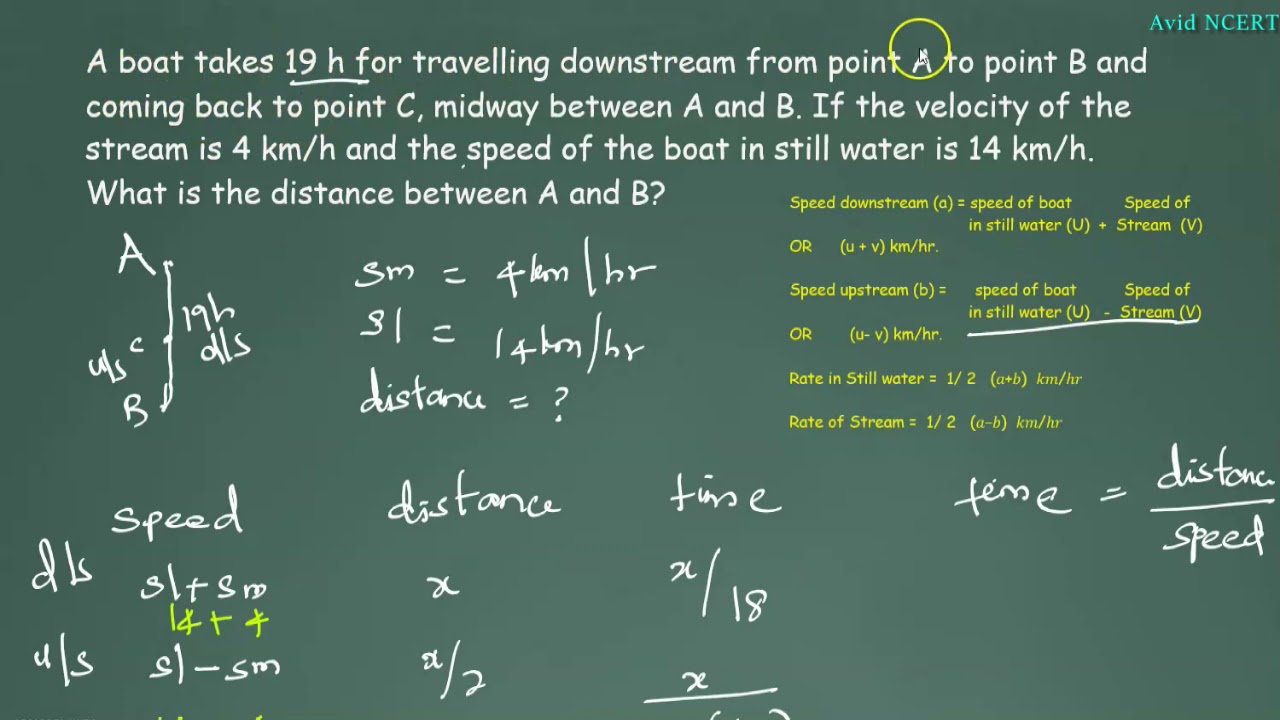 Avid NCERT
A boat takes 19 h for travelling downstream from point A to point B and
coming back to point C, midway between A and B. If the velocity of the
stream is 4 km/h and the speed of the boat in still water is 14 km/h.
What is the distance between A and B?
Speed downstream (a) = speed of boat Speed of
in still water (U) + Stream (V)
OR (u + v) km/hr.
Speed upstream (b) = speed of boat Speed of
in still water (U) - Stream (V)
OR (u- v) km/hr.
Rate in Still water = 1/ 2 (a+b) km/hr
Rate of Stream = 1/ 2 (a-b) km/hr
A
19h
d/s
C
u/s
B
sm = 4km/hr
sl = 14km/hr
distance = ?
speed distance time
time = distance
speed
d/s sl+sm x x/18
14+4
u/s sl-sm x/2 x